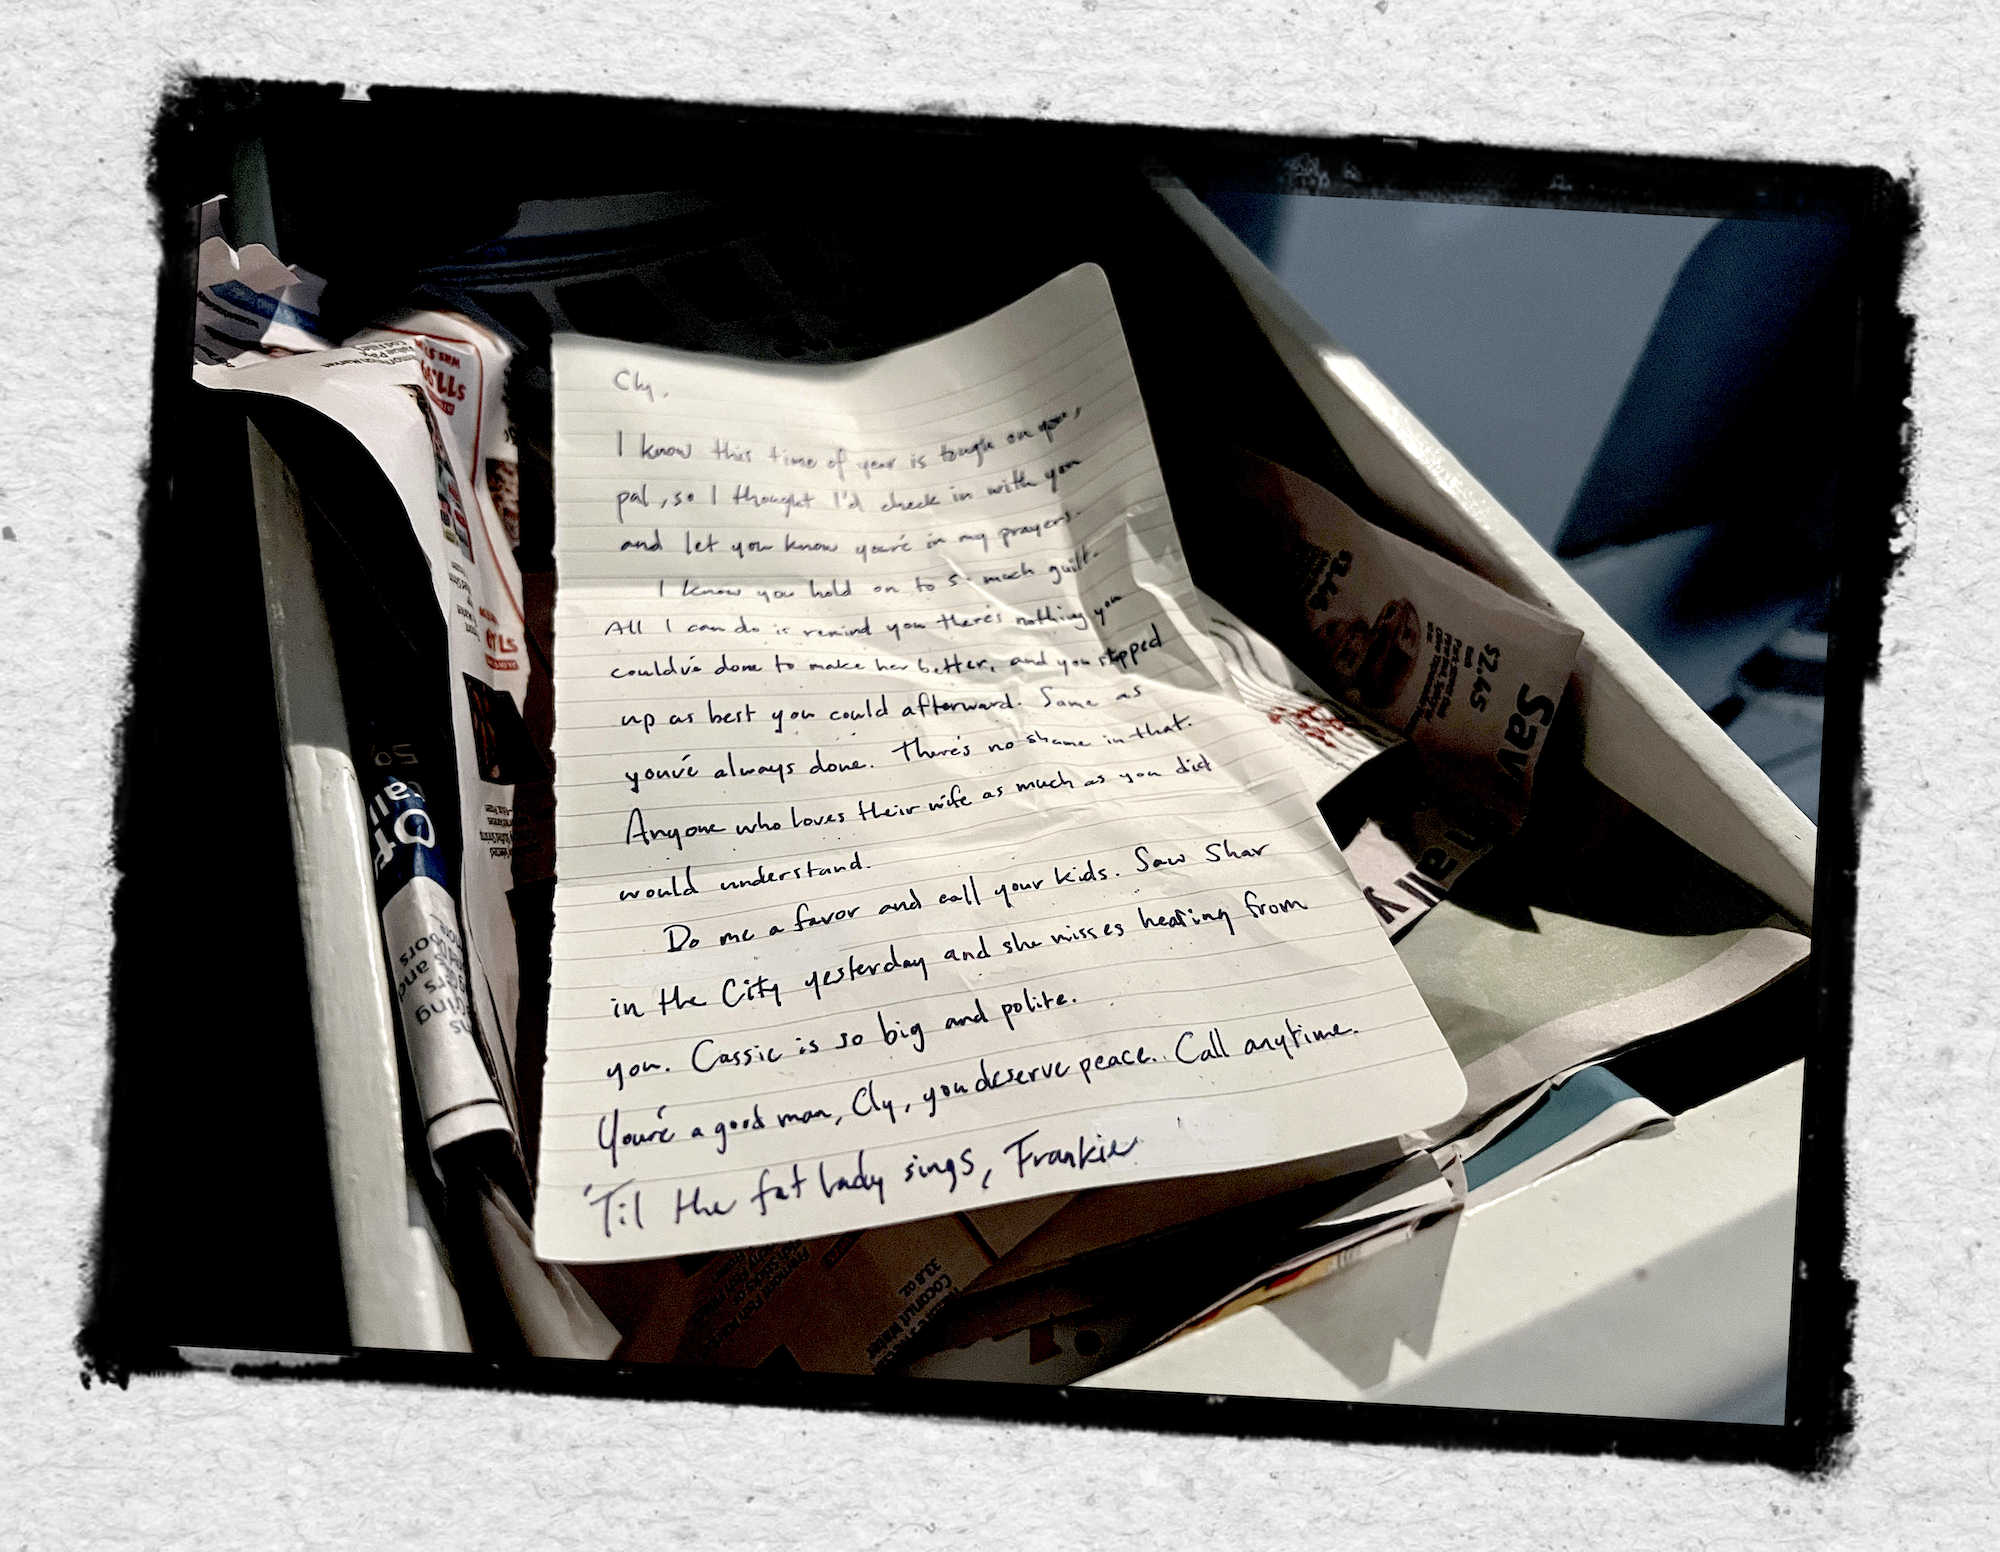 Cly,
I know this time of year is tough on you,
pal, so I thought I'd check in with you
and let you know you're in my prayers.
I know you hold on to so much guilt.
All I can do is remind you there's nothing you
could've done to make her better, and you stepped
up as best you could afterward. Same as
you've always done. There's no shame in that.
Anyone who loves their wife as much as you did
would understand.
Do me a favor and call your kids. Saw Shar
in the City yesterday and she misses hearing from
you. Cassie is so big and polite.
You're a good man, Cly, you deserve peace. Call anytime.
'Til the fat lady sings, Frankie
$2.45
Sav
33.8 oz.